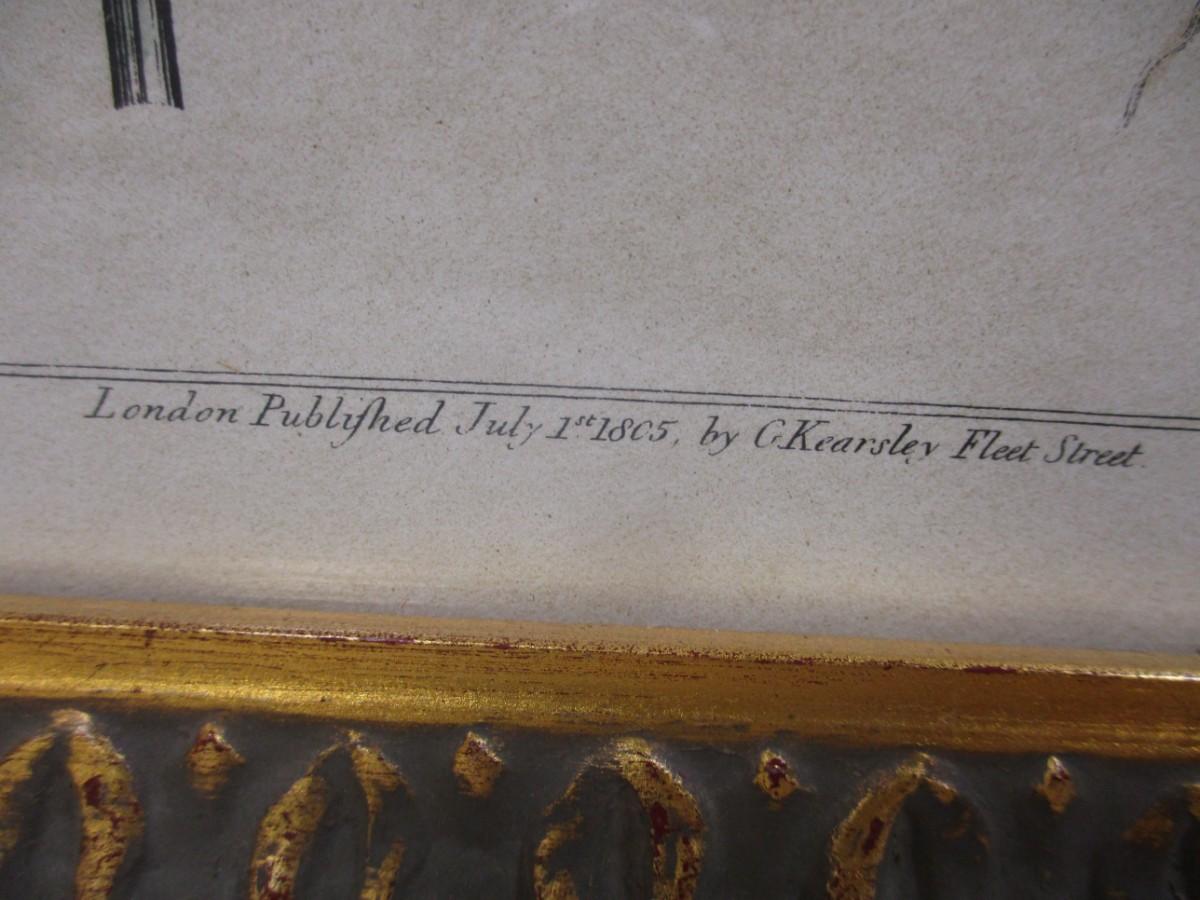 London Publiſhed July 1st 1805, by G. Kearsley Fleet Street.